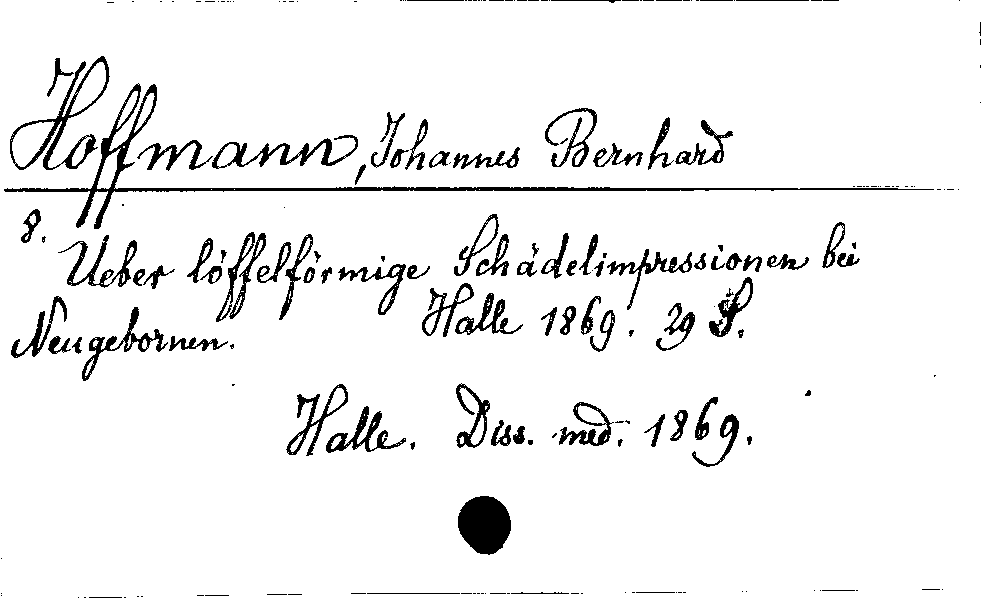 Hoffmann, Johannes Bernhard
8.
Ueber löffelförmige Schädelimpressionen bei
Neugebornen. Halle 1869. 29 S.
Halle. Diss. med. 1869.